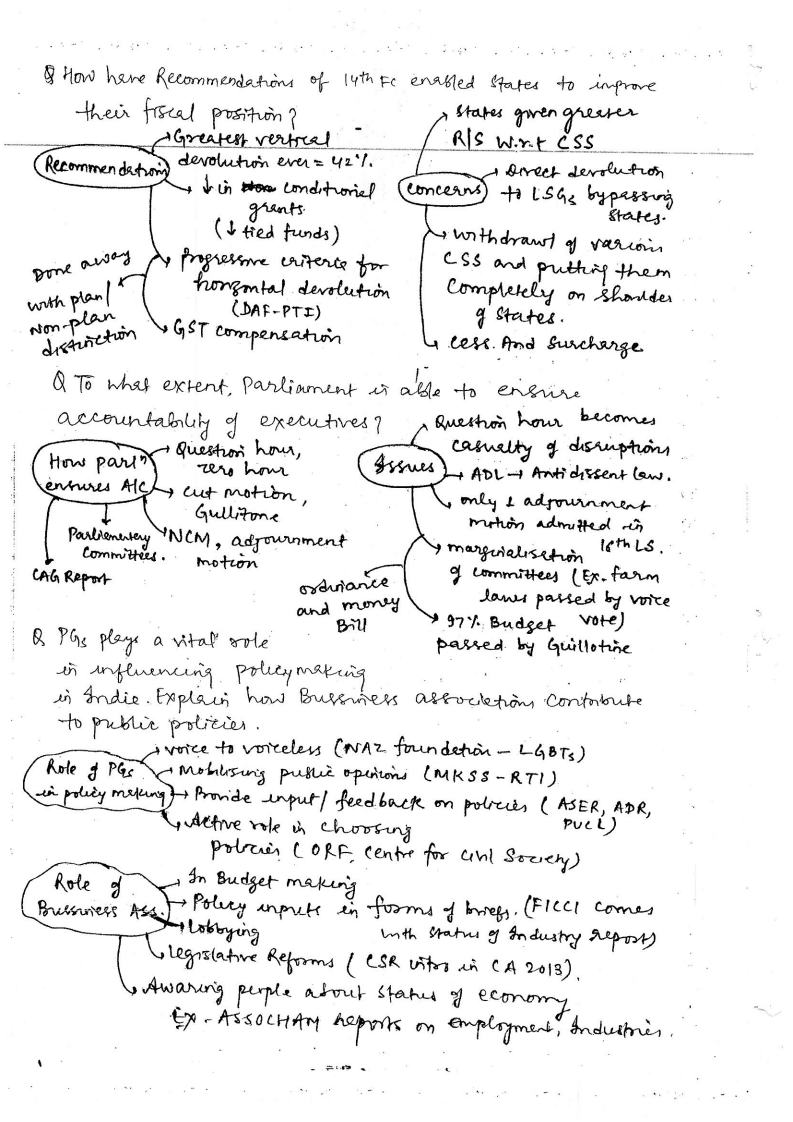 Q How have Recommendations of 14th FC enabled states to improve
their fiscal position?
Recommendation
Greatest vertical
devolution ever = 42%.
↓ in conditional
grants
(↓ tied funds)
Progressive criteria for
horizontal devolution
(DAF-PTI)
GST compensation
Done away
with plan/
Non-plan
distinction
Concerns
States given greater
R/S w.r.t CSS
Direct devolution
to LSGs bypassing
states.
withdrawl of various
CSS and putting them
completely on shoulder
of states.
Cess. And Surcharge
Q To what extent, Parliament is able to ensure
accountability of executives?
How parlⁿ
ensures A/C
Question hour,
zero hour
cut motion,
Gullitone
NCM, adjournment
motion
Parliamentary
Committees.
CAG Report
Issues
Question hour becomes
casualty of disruptions
ADL → Antidissent law.
only 1 adjournment
motion admitted in
16th LS.
marginalisation
of committees (Ex. farm
laws passed by voice
vote)
97% Budget
passed by Guillotine
ordinance
and money
Bill
Q PGs plays a vital role
in influencing policymaking
in Indie. Explain how Bussiness associations contribute
to public policies.
Role of PGs
in policy making
voice to voiceless (NAZ foundation - LGBTs)
Mobilising public opinions (MKSS - RTI)
Provide input/feedback on policies (ASER, ADR,
PUCL)
Active role in choosing
policies (ORF, Centre for Civil Society)
Role of
Bussiness Ass.
In Budget making
Policy inputs in forms of briefs. (FICCI comes
with status of Industry report)
Lobbying
Legislative Reforms (CSR intro in CA 2013).
Awaring people about status of economy
Ex - ASSOCHAM Reports on employment, Industries.